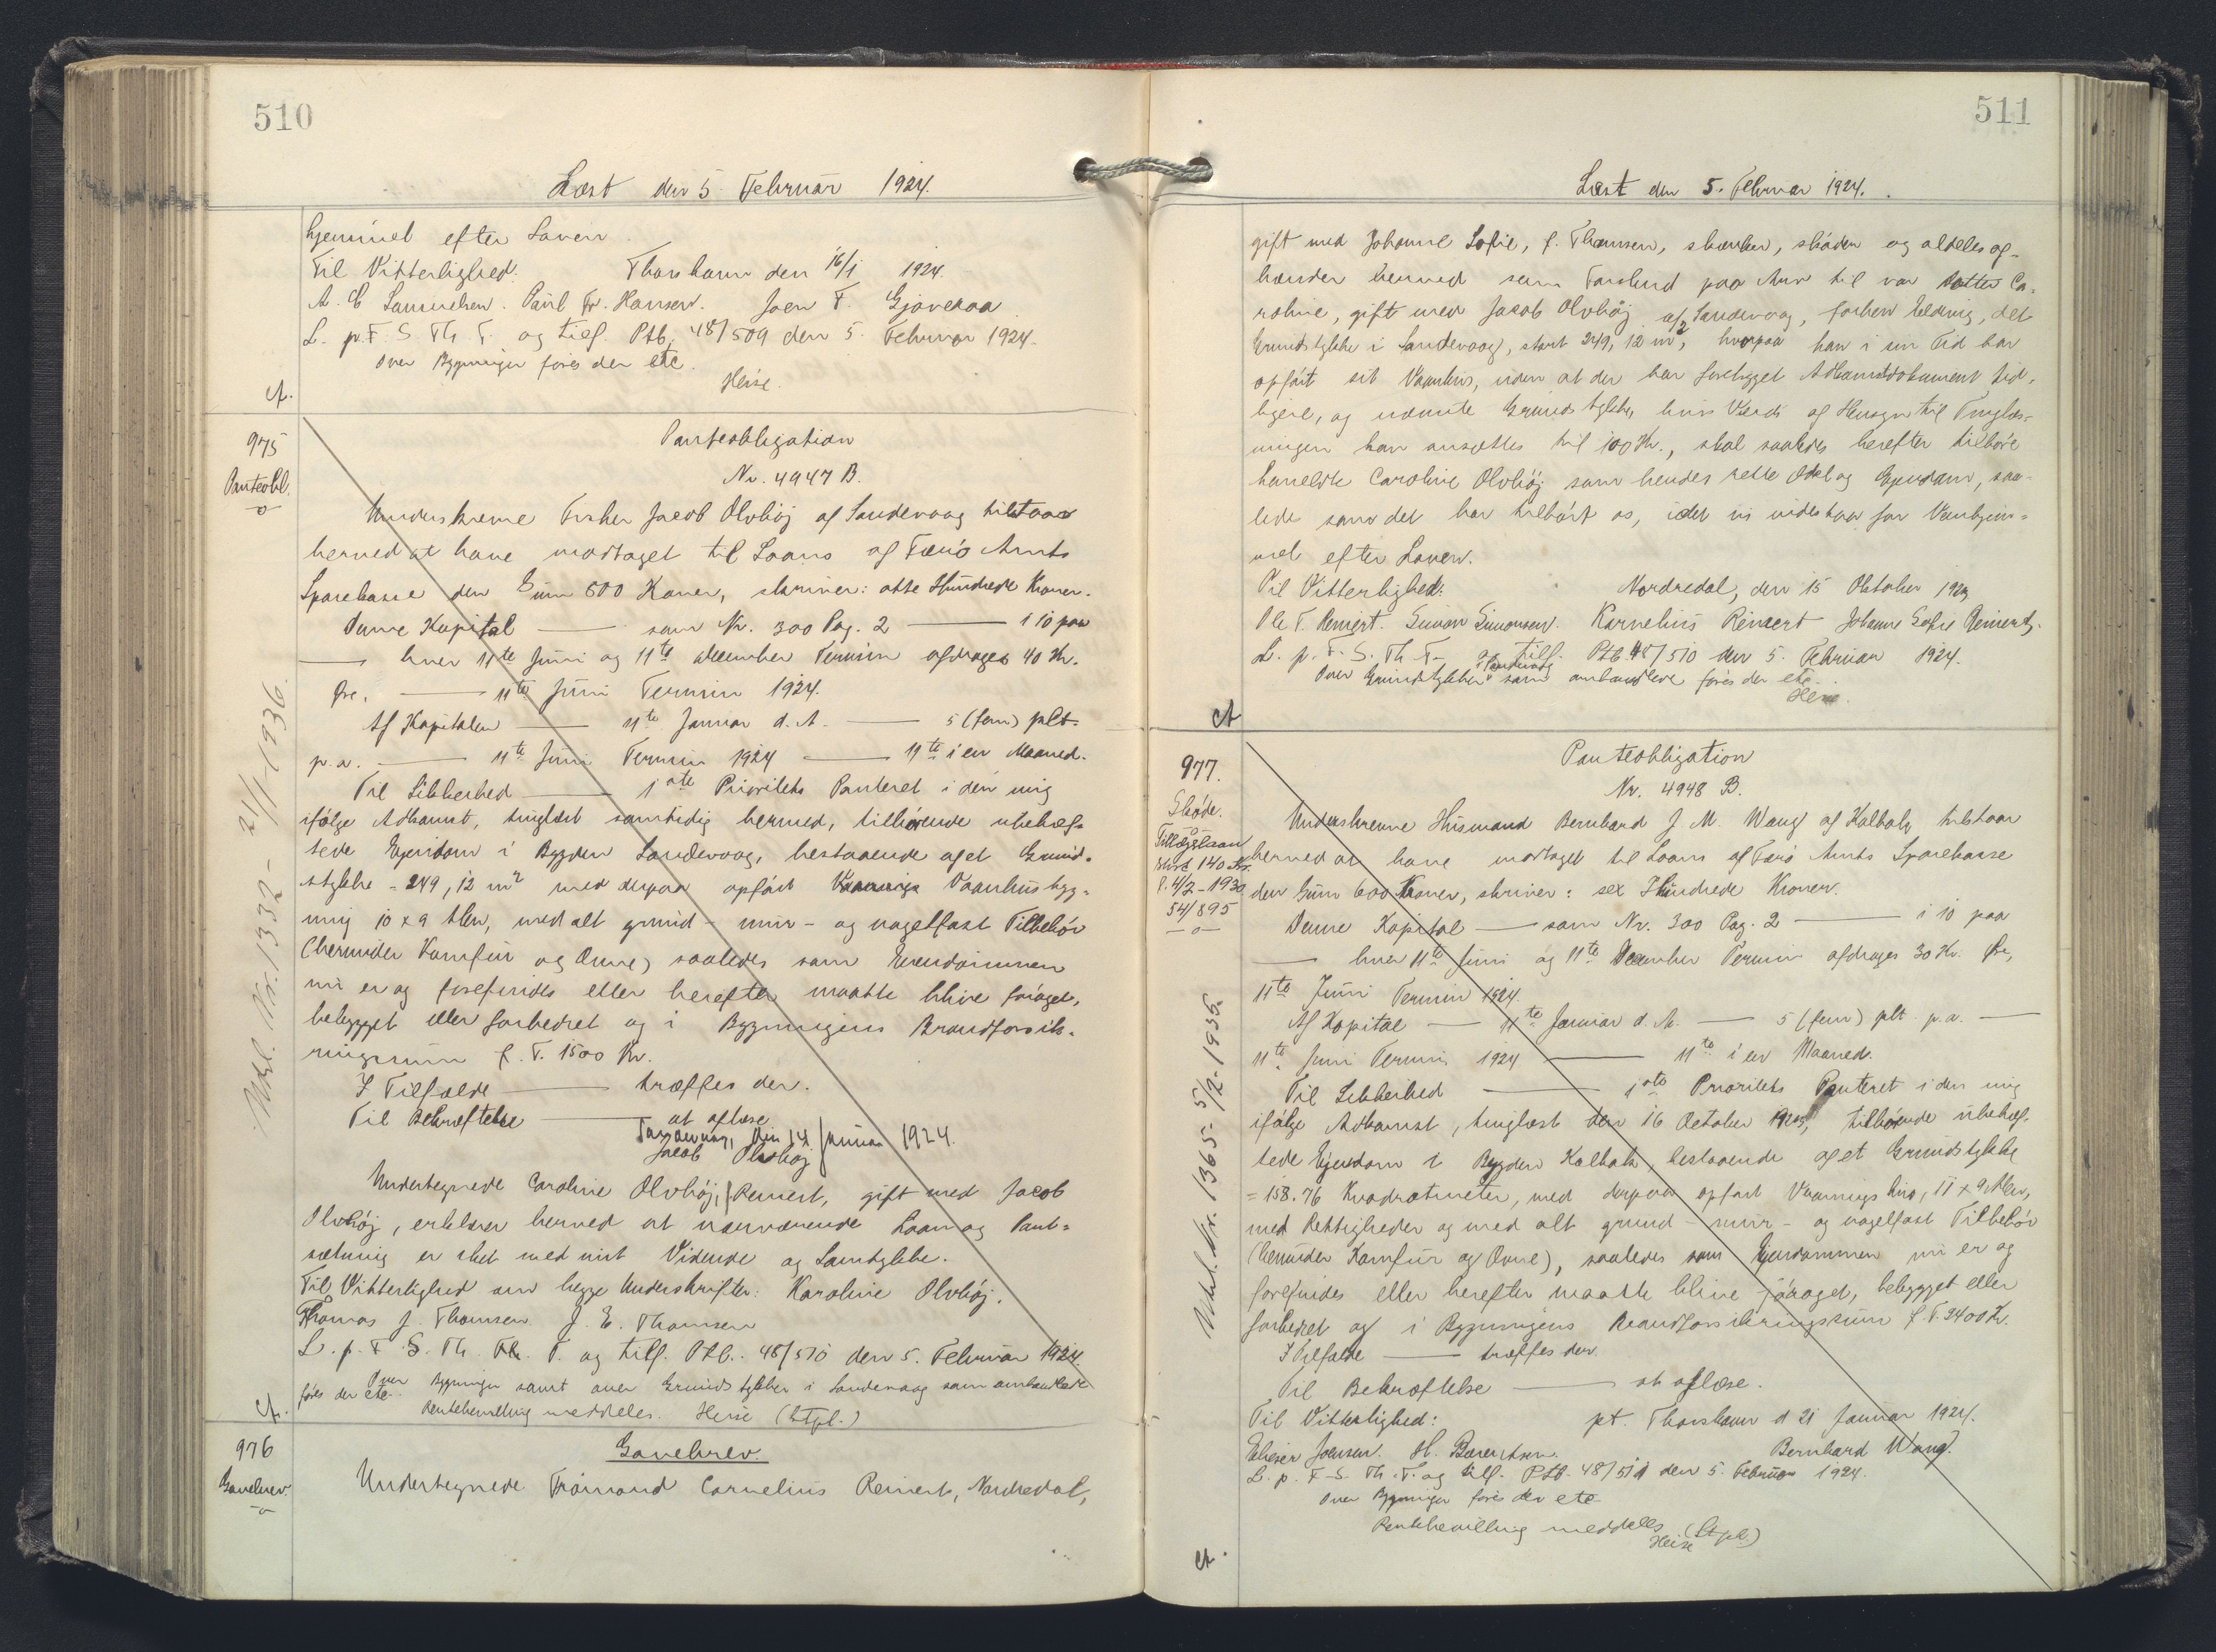 510
Læst den 5. Februar 1924.
hjemmel efter Loven.
Til Vitterlighed. Thorshavn den 16/1 1924.
A. C Samuelsen. Paul Fr. Hansen. Joen F. Gjoveraa
L. p. F. S. Th. T. og tilf. Ptb. 48/509 den 5. Februar 1924.
Over Bygninger føres der etc.
Heise.
cf.
975
Panteobl.
Panteobligation
Nr. 4947 B.
Underskrevne Fisker Jacob Olvhöj af Sandevaag tilstaar
herved at have modtaget til Laans af Færö Amts
Sparekasse den Sum 800 Kroner, skriver: otte Hundrede Kroner.
Denne Kapital — som Nr. 300 Pag. 2 — i 10 paa
— hver 11te Juni og 11te December Termin afdrages 40 Kr.
Øre, — 11te Juni Termin 1924.
Af Kapitalen — 11te Januar d. A. — 5 (fem) pCt.
p. a. — 11te Juni Termin 1924 — 11te i en Maaned.
Til Sikkerhed — 1ste Prioritets Panteret i den mig
ifølge Adkomst, tinglæst samtidig hermed, tilhørende ubehæf-
tede Ejendom i Bygden Sandevaag, bestaaende af et Grund-
stykke = 249,12 m2 med derpaa opført Vaanings Vaanhusbyg-
ning 10 x 9 Alen, med alt grund- mur- og nagelfast Tilbehör
(herunder Komfur og Ovne) saaledes som Ejendommen
nu er og forefindes eller herefter maatte blive foröget,
bebygget eller forbedret og i Bygningens Brandforsik-
ringssum f. T. 1500 Kr.
I Tilfælde — træffes der.
Til Bekræftelse — at aflæse
Sandevaag, den 14 Januar 1924.
Jacob Olvhöj
Undertegnede Caroline Olvhöj, f. Reinert, gift med Jacob
Olvhöj, erklærer herved at nærværende Laan og Pant-
sætning er sket med mit Vidende og Samtykke.
Til Vitterlighed om begge Underskrifter: Karoline Olvhöj.
Thomas J. Thomsen. J. E. Thomsen
L. p. F. S. Th. T. og tilf. Ptb. 48/510 den 5. Februar 1924.
Over Bygninger samt over Grundstykker i Sandevaag som ombandlede
føres der etc.
Rentebevilling meddeles. Heise (Ltpl.)
cf.
Udsl. Nr. 1332 - 21/1 1936.
976
Gavebrev.
Gavebrev.
Undertegnede Tromand Cornelius Reinert, Nordredal,
511
Læst den 5. Februar 1924.
gift med Johanne Sofie, f. Thomsen, skænker, sköder og aldeles af-
hænder herved som Forskud paa Arv til vor Datter Ca-
roline, gift med Jacob Olvhöj af Sandevaag, forhen Eldevig, det
Grundstykke i Sandevaag, stort 249,12 m2, hvorpaa han i sin Tid har
opført sit Vaanhus, uden at der har foreligget Adkomstdokument tid-
ligere, og nævnte Grundstykke, hvis Værdi af Hensyn til Tinglæs-
ningen kan ansættes til 100 Kr., skal saaledes herefter tilhöre
bemeldte Caroline Olvhöj som hendes rette Odel og Ejendom, saa-
ledes som det har tilhört os, idet vi indestaar for Vanhjem-
mel efter Loven.
Til Vitterlighed: Nordredal, den 15 Oktober 1923
Ole T. Reinert. Simon Simonsen. Kornelius Reinert Johanne Sofie Reinert.
L. p. F. S. Th. T. og tilf. Ptb. 48/510 den 5. Februar 1924.
Over Grundstykker i Sandevaag som ombandlede føres der etc.
Heise.
cf
977.
Sköde.
Tillægslaan
stort 140 Kr.
l. 4/2 - 1930
54/895
Panteobligation
Nr. 4948 B.
Underskrevne Husmand Bernhard J. M. Wang af Kalbak tilstaar
herved at have modtaget til Laans af Færö Amts Sparekasse
den Sum 600 Kroner, skriver: sex Hundrede Kroner.
Denne Kapital — som Nr. 300 Pag. 2 — i 10 paa
— hver 11te Juni og 11te December Termin afdrages 30 Kr. Øre,
11te Juni Termin 1924.
Af Kapital — 11te Januar d. A. — 5 (fem) pCt. p. a. —
11te Juni Termin 1924 — 11te i en Maaned.
Til Sikkerhed — 1ste Prioritets Panteret i den mig
ifølge Adkomst, tinglæst den 16 October 1923, tilhørende ubehæf-
tede Ejendom i Bygden Kalbak, bestaaende af et Grundstykke
= 158.76 Kvadratmeter, med derpaa opført Vaanings hus, 11 x 9 Alen,
med Rettigheder og med alt grund- mur- og nagelfast Tilbehör
(herunder Komfur og Ovne), saaledes som Ejendommen nu er og
forefindes eller herefter maatte blive foröget, bebygget eller
forbedret og i Bygningens Brandforsikringssum f. T. 3400 Kr.
I Tilfælde — træffes der.
Til Bekræftelse — at aflæse.
Til Vitterlighed: pt. Thorshavn d 21 Januar 1924.
Elieser Joensen. H. Berentsen. Bernhard Wang.
L. p. F. S. Th. T. og tilf. Ptb. 48/511 den 5. Februar 1924.
Over Bygninger føres der etc
Rentebevilling meddeles (Ltpl.)
Heise
cf.
Udsl. Nr. 1365 - 5/2 - 1935.